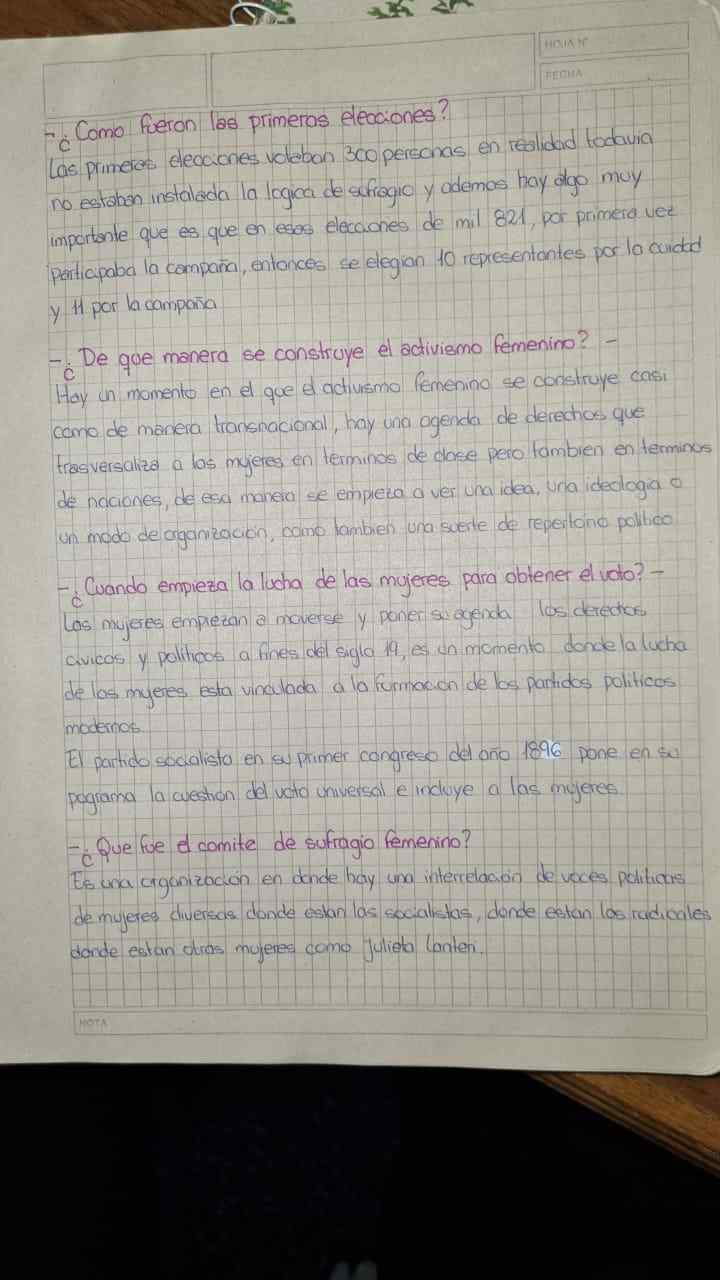 HOJA Nº
FECHA
-¿Como fueron las primeras elecciones?
Las primeras elecciones votaban 300 personas en realidad todavia
no estaban instalada la logica de sufragio y ademas hay algo muy
importante que es que en esas elecciones de mil 821, por primera vez
participaba la campaña, entonces se elegian 10 representantes por la cuidad
y 11 por la campaña
-¿De que manera se construye el activismo femenino? -
Hay un momento en el que el activismo femenino se construye casi
como de manera transnacional, hay una agenda de derechos que
trasversaliza a las mujeres en terminos de clase pero tambien en terminos
de naciones, de esa manera se empieza a ver una idea, una ideologia o
un modo de organización, como tambien una suerte de repertorio politico
-¿Cuando empieza la lucha de las mujeres para obtener el voto? -
Las mujeres empiezan a moverse y poner su agenda los derechos
civicos y politicos a fines del siglo 19, es un momento donde la lucha
de las mujeres esta vinculada a la formacion de los partidos politicos
modernos
El partido socialista en su primer congreso del año 1896 pone en su
pograma la cuestion del voto universal e incluye a las mujeres
-¿Que fue el comite de sufragio femenino?
Es una organización en donde hay una interrelación de voces politicas
de mujeres diversas donde estan las socialistas, donde estan las radicales
donde estan otras mujeres como Julieta lanteri.
NOTA